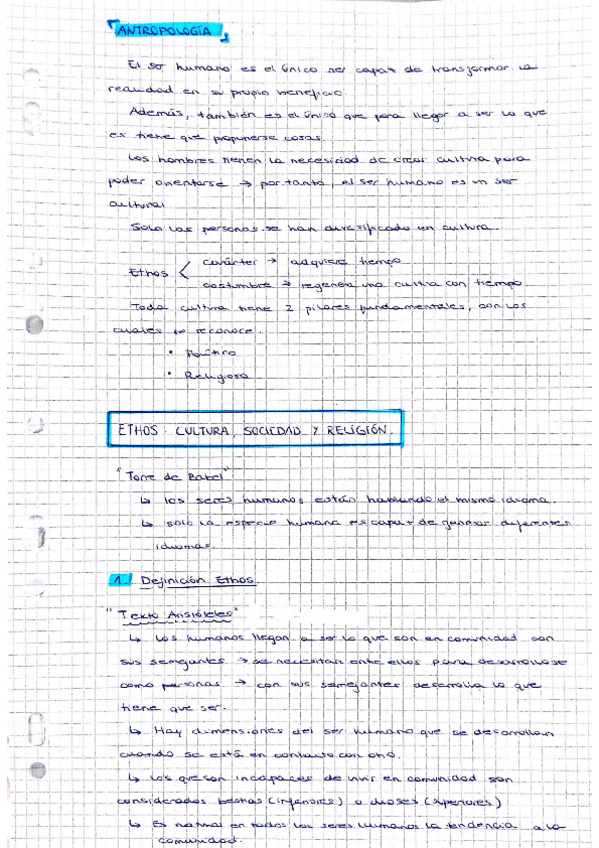 ANTROPOLOGÍA
El ser humano es el único ser capaz de transformar la
realidad en su propio beneficio.
Además, también es el único que para llegar a ser lo que
es tiene que proponerse cosas.
Los hombres tienen la necesidad de crear cultura para
poder orientarse → por tanto, el ser humano es un ser
cultural
Solo las personas se han diversificado en cultura.
Ethos < carácter → adquiere tiempo
costumbre → regenera una cultura con tiempo
Toda cultura tiene 2 pilares fundamentales, con los
cuales se reconoce.
• Político
• Religioso
ETHOS: CULTURA, SOCIEDAD Y RELIGIÓN.
"Torre de Babel"
↳ los seres humanos están hablando el mismo idioma.
↳ solo la especie humana es capaz de generar diferentes
idiomas.
1. Definición Ethos
"Texto Aristóteles"
↳ Los humanos llegan a ser lo que son en comunidad con
sus semejantes → se necesitan entre ellos para desarrollarse
como personas → con sus semejantes desarrolla lo que
tiene que ser.
↳ Hay dimensiones del ser humano que se desarrollan
cuando se está en contacto con otro.
↳ Los que son incapaces de vivir en comunidad son
considerados bestias (inferiores) o dioses (superiores)
↳ Es normal en todos los seres humanos la tendencia a la
comunidad.